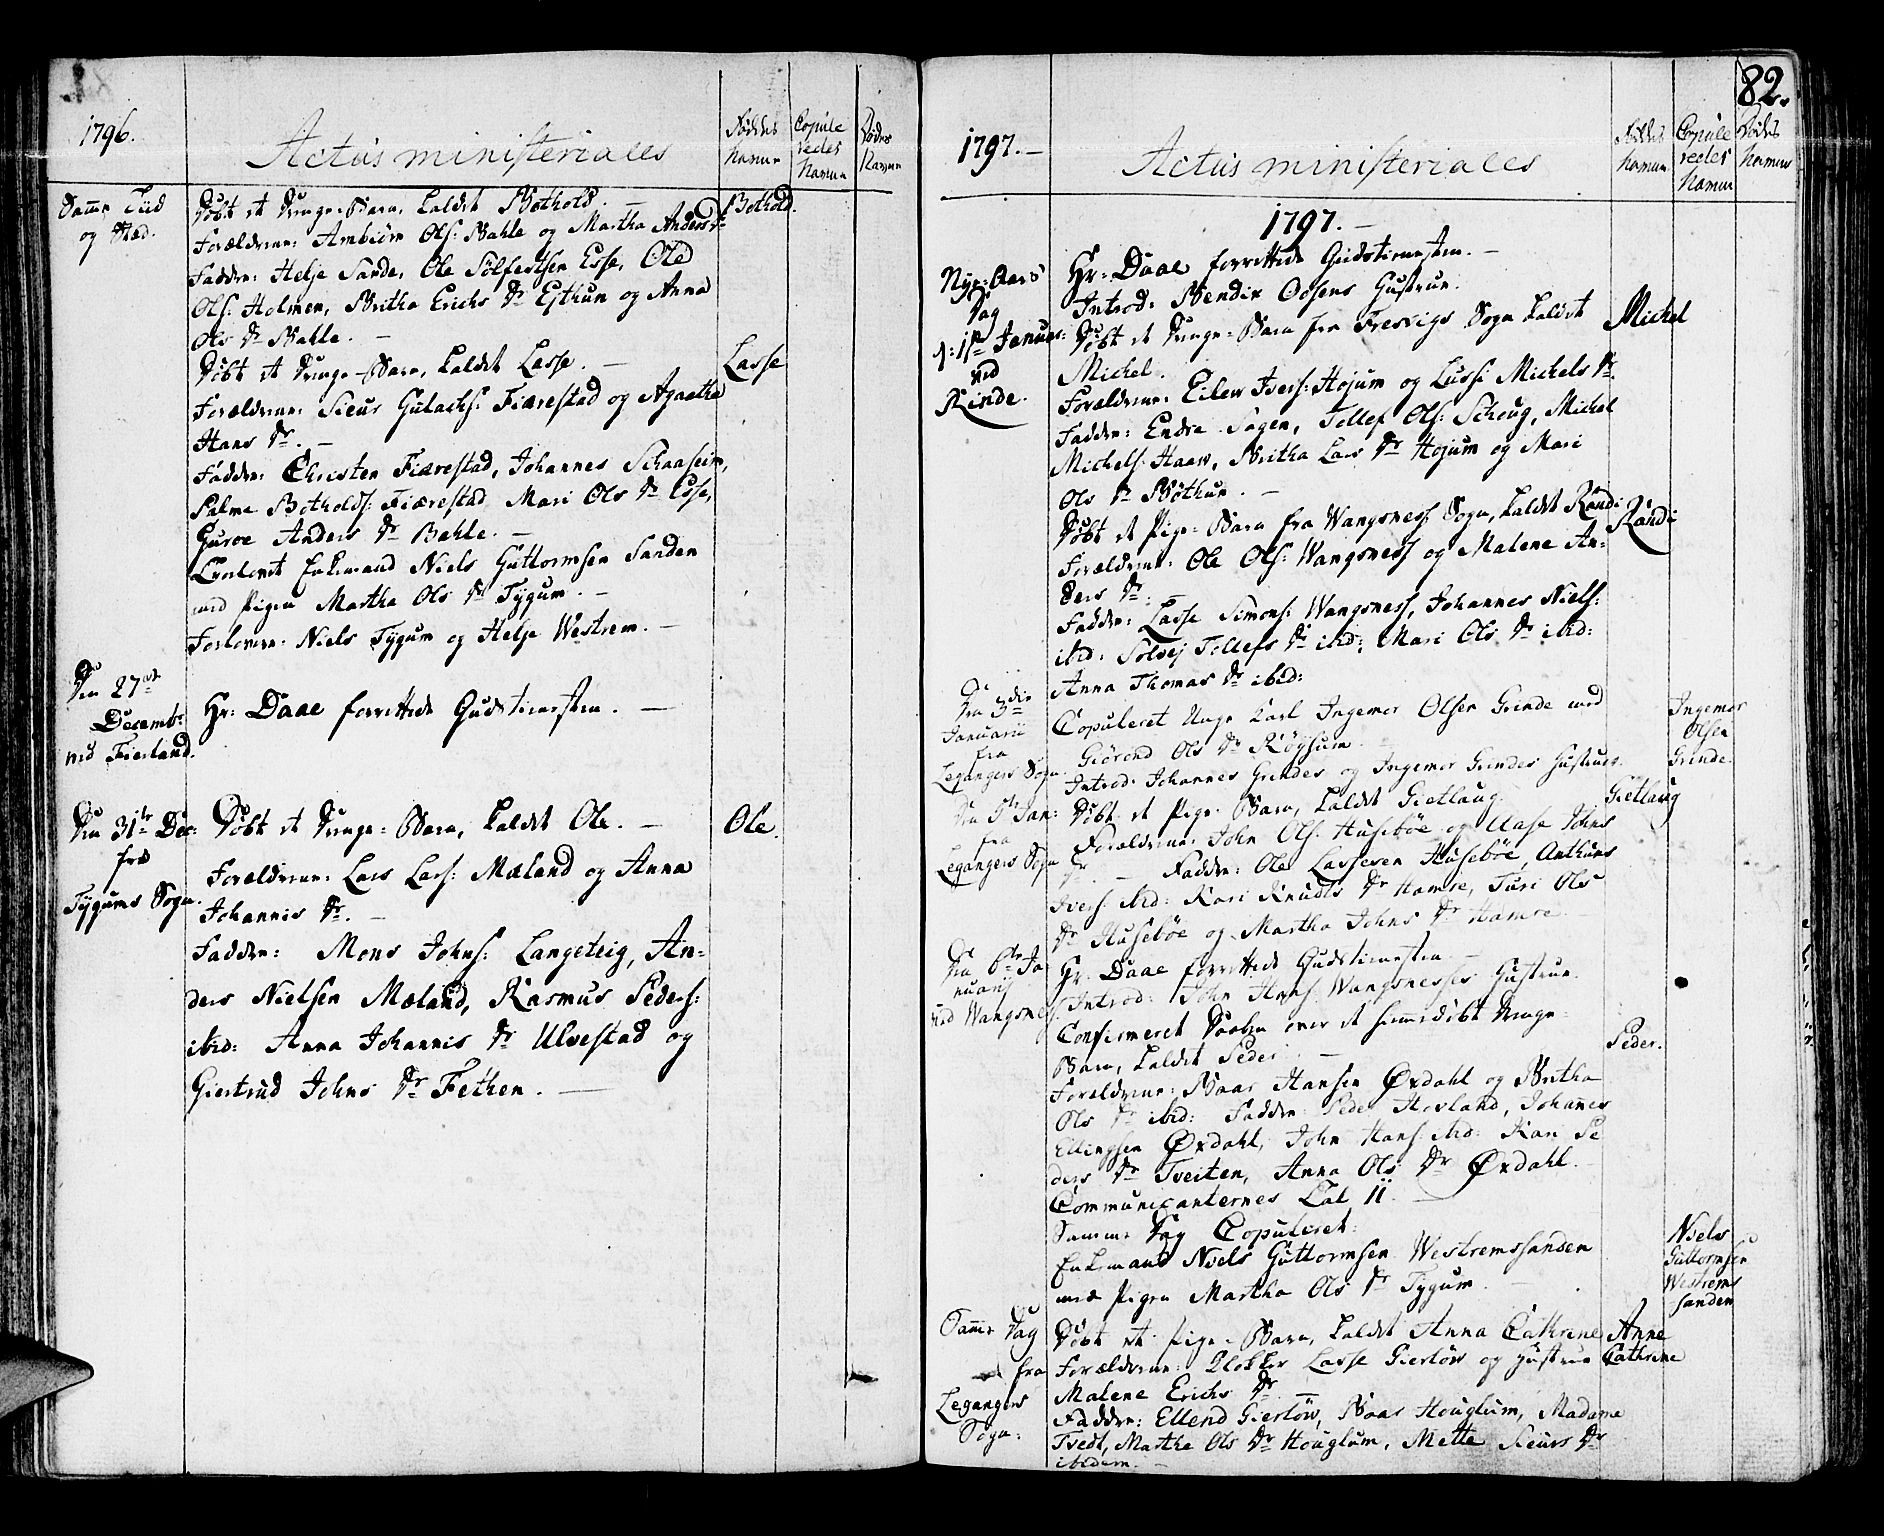 1796.
Actus ministeriales
Føddes
Navne
Copule
redes
Navne
Dødes
Navne
Samme Tiid
og Stæd.
Døbt et Drenge-Barn, kaldet Bothold. —
Bothold.
Forældrene: Ambiørn Ols: Bahle og Martha Anders Dr
Faddre: Helje Sande, Ole Sølfestsen Esse, Ole
Ols: Holmen, Britha Erichs Dr Esthun og Anna
Ols Dr Bahle. —
Døbt et Drenge-Barn, kaldet Lasse. —
Lasse
Forældrene: Sieur Gulachs: Fiærestad og Agaatha
Hans Dr. —
Faddre: Christen Fiærestad, Johannes Schaaseim,
Salme Botholds: Fiærestad Mari Ols Dr Esse,
Guroe Anders Dr Bahle. —
Trolovet Enkemand Niels Guttormsen Sanden
med Pigen Martha Ols Dr Tygum. —
Forlovere: Niels Tygum og Helje Westrem. —
Den 27de
Decembr
ved Fierland.
Hr: Daae forrettede Gudstienesten. —
Den 31te Dec:
fra
Tygums Sogn.
Døbt et Drenge-Barn, kaldet Ole. —
Ole.
Forældrene: Lars Lars: Mæland og Anna
Johannis Dr. —
Faddre: Mons Johns: Langeteig, An-
ders Nielsen Mæland, Rasmus Peders:
ibid: Anna Johannis Dr Ulvestad og
Giertrud Johns Dr Fethen. —
82.
1797. —
Actus ministeriales
Føddes
Navne
Copule
redes
Navne
Dødes
Navne
1797. —
Nye-Aars
Dag
d: 1ste Januar:
ved
Rinde.
Hr: Daae forrettede Gudstienesten. —
Introd: Bendix Oosens Hustrue.
Døbt et Drenge-Barn fra Fresvigs Sogn kaldet
Michel
Michel.
Forældrene: Eilew Ivers: Hojum og Lussi Michels Dr.
Faddre: Endre Sagen, Tollef Ols: Schoug, Michel
Michels: Haaw, Britha Lars Dr Hojum og Mari
Ols Dr Bøthun. —
Døbt et Pige-Barn fra Wangsness Sogn, kaldet Randi
Randi
Forældrene: Ole Ols: Wangsness og Malene An-
ders Dr. —
Faddre: Lasse Simons: Wangsness, Johannes Niels:
ibid: Solvej Tollefs Dr ibid: Mari Ols Dr ibid:
Anna Thomas Dr ibid:
Den 3die
Januarii
fra
Legangers Sogn.
Copuleret Unge Karl Ingemor Olsen Grinde med
Giörond Ols Dr Röysum.
Ingemor
Olsen
Grinde.
Introd: Johannes Grindes og Ingemor Grindes Hustruer.
Den 5te Jan:
fra
Legangers Sogn
Døbt et Pige-Barn, kaldet Gietlaug
Gietlaug
Forældrene: John Ols: Husebøe og Aase Johns
Dr. — Faddre: Ole Lassesen Husebøe, Anthuns
Ivers: ibid: Kari Knudts Dr Hamre, Turi Ols
Dr Husebøe og Martha Johns Dr Hamre
Den 6te Ja
nuarij
ved Wangsness.
Hr: Daae forrettede Gudstienesten. —
Introd: John Hans: Wangsnesses Hustrue.
Confirmeret Daaben over et hiemmedøbt Drenge-
Barn, kaldet Peder. —
Peder.
Forældrene: Baar Hansen Øxdahl og Britha
Ols Dr ibid: Faddre: Peder Hovland, Johannes
Ellingsen Øxdahl, John Hans: ibid: Kari Pe
ders Dr Tveiten, Anna Ols Dr Øxdahl. —
Communicanternes Tal 11. —
Samme Dag Copuleret:
Enkemand Niels Guttormsen Westremssanden
med Pigen Martha Ols Dr Tygum. —
Niels
Guttormsen
Westrems
sanden
Samme Dag
fra
Legangers
Sogn:
Døbt et Pige-Barn, kaldet Anna Cathrine
Anne
Cathrine
Forældrene: Klokker Lasse Giertöw og Hustrue
Malene Erichs Dr. —
Faddre: Ellend Giertöw, Baar Houglum, Madame
Tvedt, Martha Ols Dr Houglum, Mette Sieurs Dr
ibidem. —